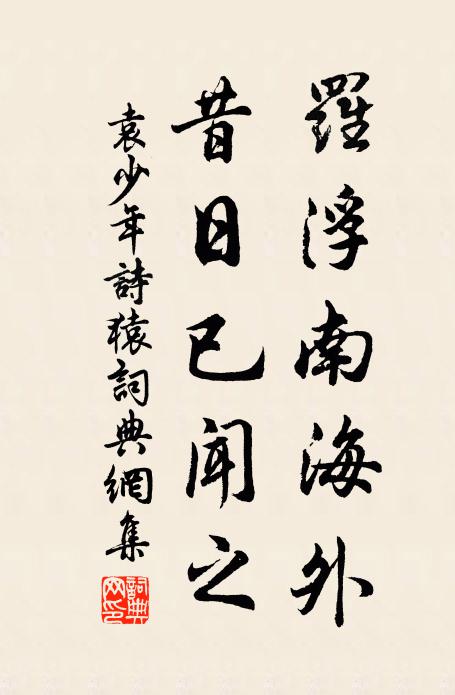 羅浮南海外
昔日已聞之
袁少年詩猿詞典網集
詞典網印